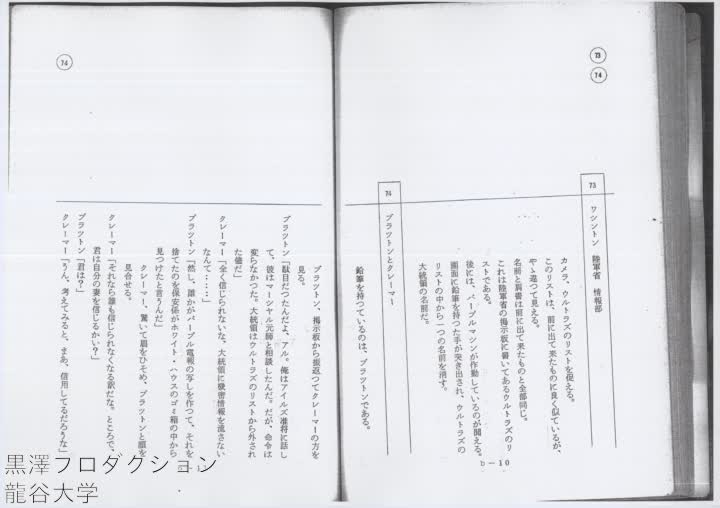 73
74
73
ワシントン 陸軍省 情報部
カメラ、ウルトラズのリストを捉える。
このリストは、前に出て来たものに良く似ているが、
やゝ違つて見える。
名前と肩書は前に出て来たものと全部同じ。
これは陸軍省の掲示板に書いてあるウルトラズのリ
ストである。
後には、パープルマシンが作動しているのが聞える。
画面に鉛筆を持つた手が突き出され、ウルトラズの
リストの中から一つの名前を消す。
大統領の名前だ。
b－10
74
プラツトンとクレーマー
鉛筆を持つているのは、プラツトンである。
74
プラツトン、掲示板から振返つてクレーマーの方を
見る。
プラツトン「駄目だつたんだよ、アル。俺はアイルズ准将に話し
て、彼はマーシヤル元帥と相談したんだ。だが、命令は
変らなかつた。大統領はウルトラズのリストから外され
た儘だ」
クレーマー「全く信じられないな、大統領に機密情報を流さない
なんて‥‥」
プラツトン「然し、誰かがパープル電報の写しを作つて、それを
捨てたのを保安係がホワイト・ハウスのゴミ箱の中から
見つけたと言うんだ」
クレーマー、驚いて眉をひそめ、プラツトンと顔を
見合せる。
クレーマー「それなら誰も信じられなくなる訳だな。ところで、
君は自分の妻を信じるかい？」
プラツトン「君は？」
クレーマー「うん、考えてみると、まあ、信用してるだろうな」
黒澤プロダクション
龍谷大学